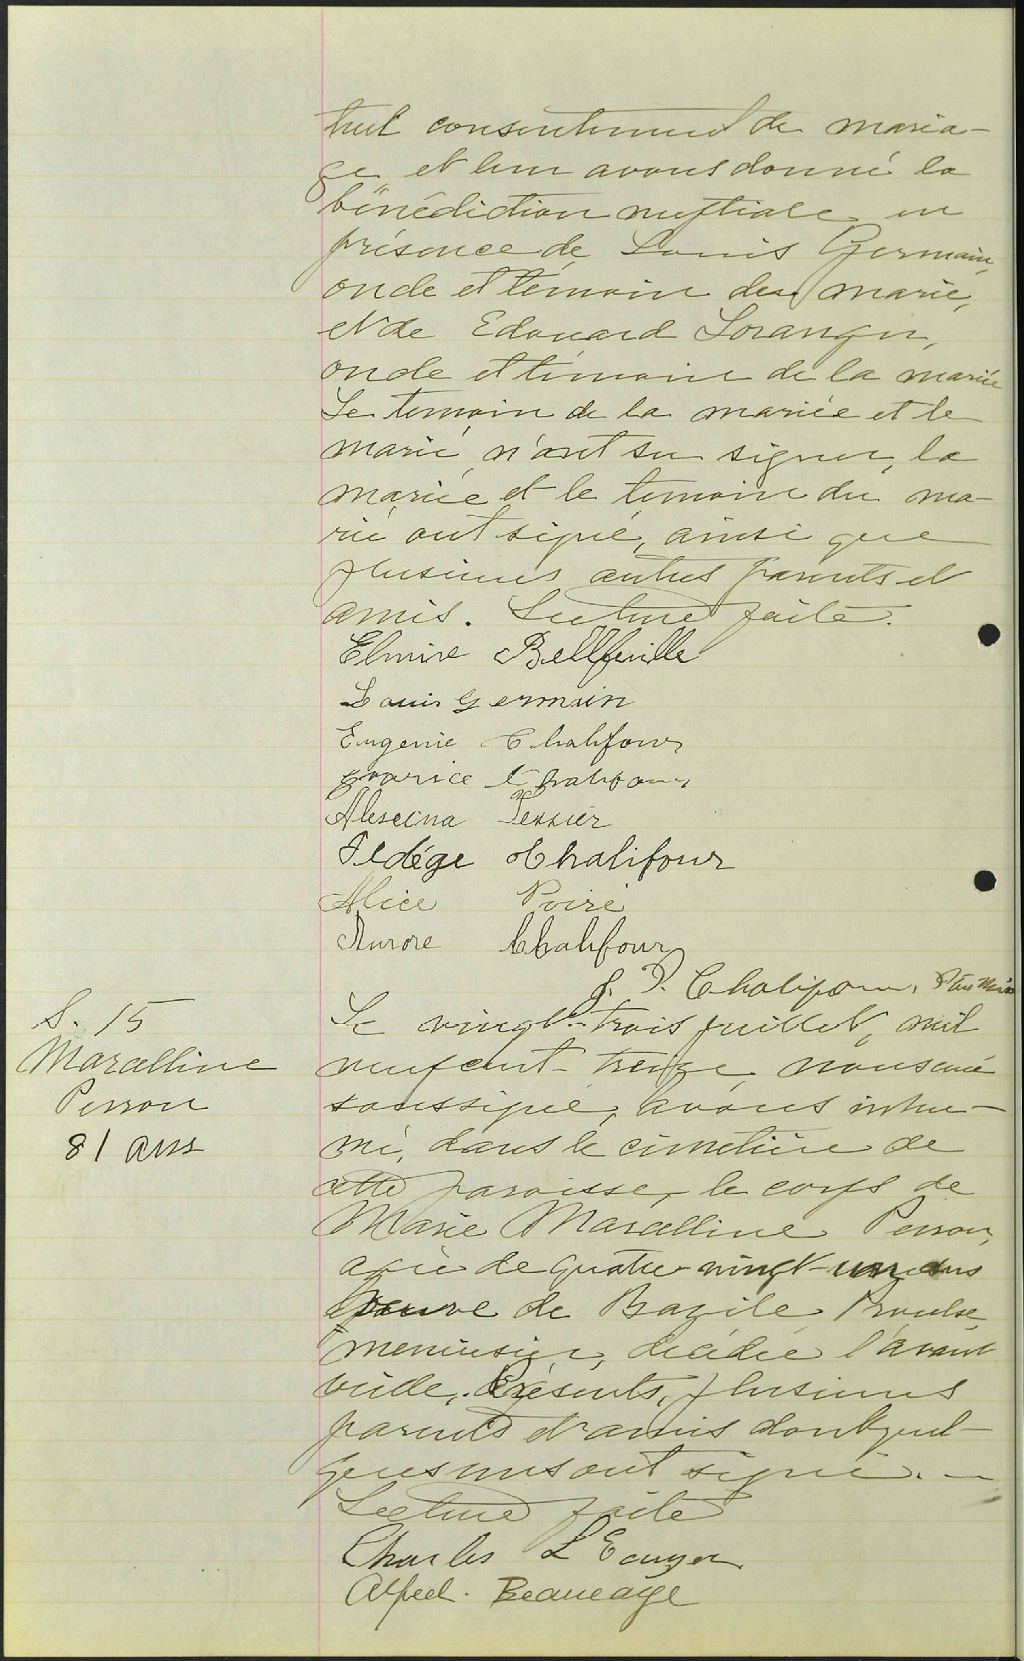 tuel consentement de maria-
ge et leur avons donné la
bénédiction nuptiale en
présence de Louis Germain,
oncle et témoin du marié,
et de Edouard Loranger,
oncle et témoin de la mariée
Le temoin de la mariée et le
marié n'ont su signer, la
mariée et le temoin du ma-
rié ont signé, ainsi que
plusieurs autres parents et
amis. Lecture faite.
Elmire Bellfeuille
Louis Germain
Eugenie Chalifour
Chalifour
Tessier
Chalifour
Alice Poiré
Aurore Chalifour
J. P. Chalifour,
S. 15
Marcelline
Perron
81 ans
Le vingt-trois juillet, mil
neuf cent-treize nous curé
soussigné, avons inhu-
mé, dans le cimetière de
cette paroisse, le corps de
Marie Marcelline Perron,
agée de quatre-vingt-un ans
de Bazile Proulx,
menuisier, décédée l'avant
veille. Présents, plusieurs
parents et amis dont quel-
ques uns ont signé. -
Lecture faite
Charles
Alfred. Beaucage